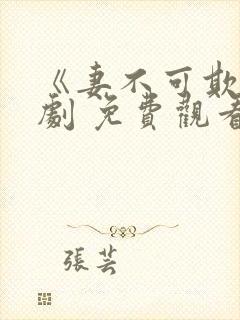 《妻不可欺
劇 免費觀看
張芸